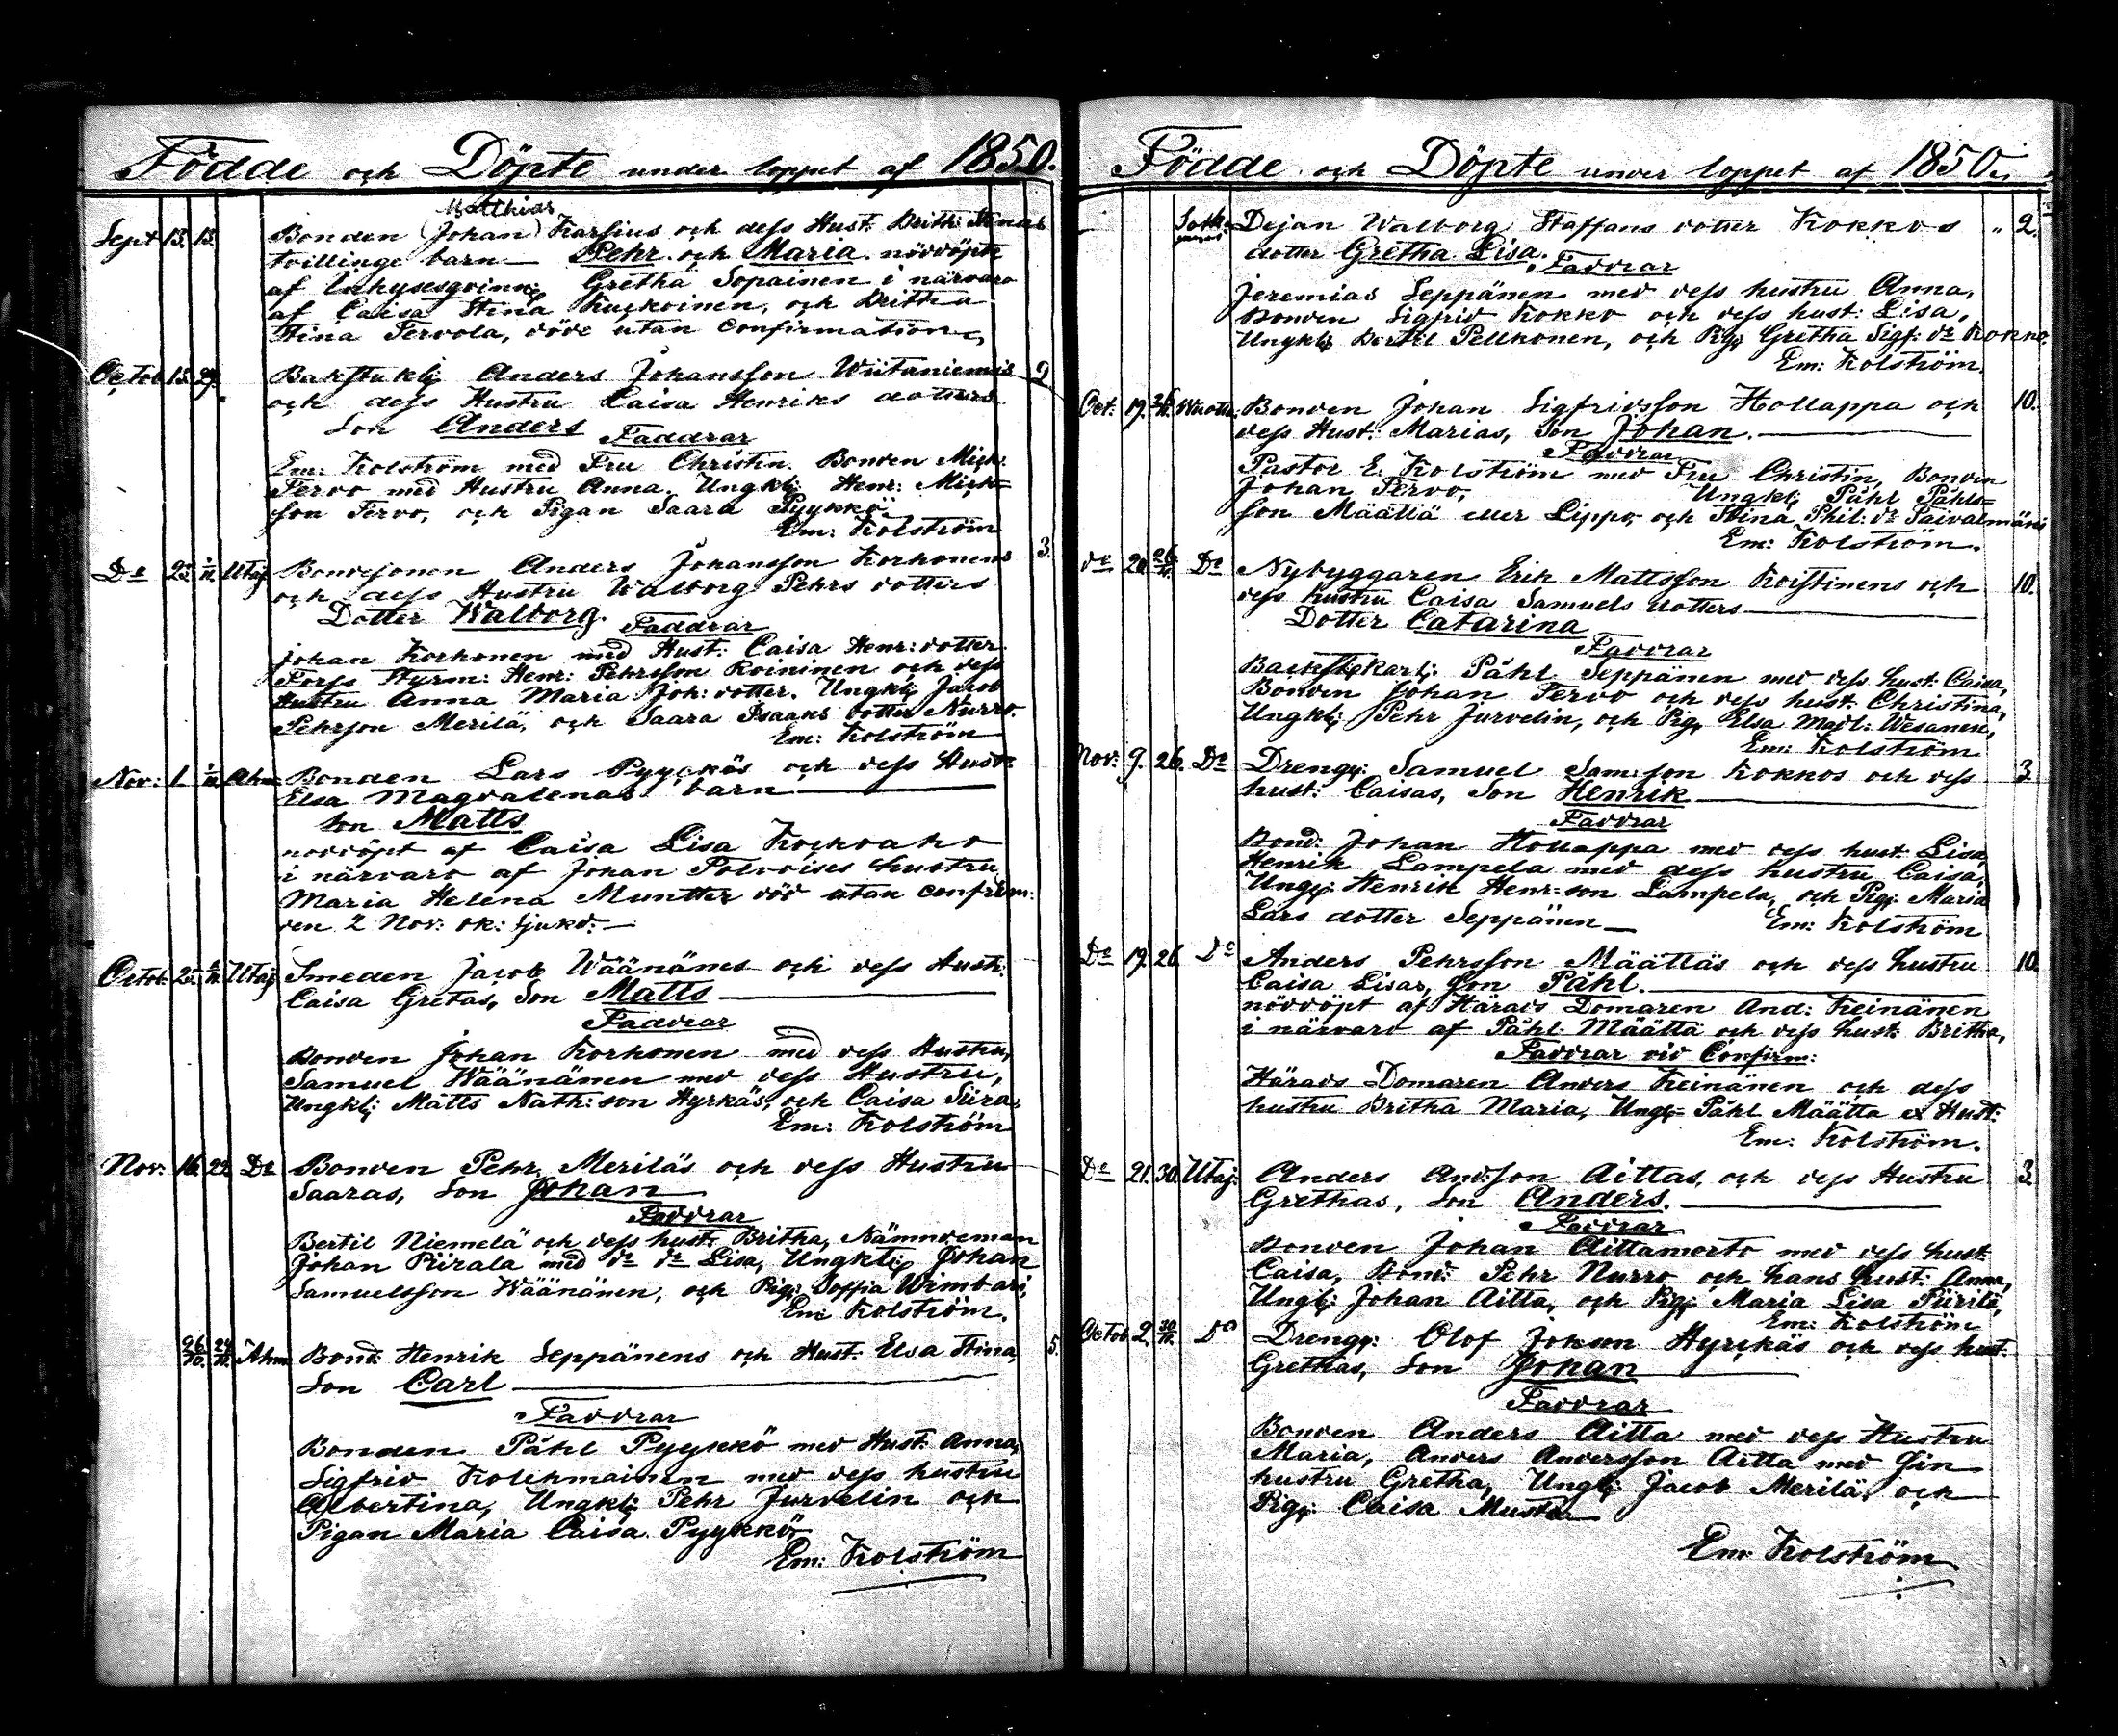 Födde och Döpte under loppet af 1850.
Matthias
Sept 13. 13. Bonden (Johan) Karsius och dess Hust. Brith: Stinas
tvillinge barn — Pehr och Maria nöddöpte
af Inhysesqvinn: Gretha Sopainen i närvaro
af Caisa Stina Kuckoinen, och Britha
Stina Tervola, döde utan confirmation
Octob 15. 27. Bakstukl: Anders Johansson Wiitaniemis 9
och dess Hustru Caisa Henriks dotters
Son Anders
Faddrar
Em: Kolström med Fru Christin. Bonden Mich:
Tervo med Hustru Anna. Ungkl: Henr: Mich-
son Tervo, och Pigan Saara Pyykkö
Em: Kolström
Do 23. 1/11 Utaj Bondesonen Anders Johansson Korhonens 3.
och dess Hustru Walborg Pehrs dotters
Dotter Walborg.
Faddrar
Johan Korhonen med Hust: Caisa Henr: dotter.
Forss Styrm: Henr: Pehrsson Roininen och dess
Hustru Anna Maria Joh: dotter. Ungkl: Jacob
Pehrson Merilä, och Saara Isaaks dotter Nurro.
Em: Kolström
Nov: 1. Ahm Bonden Lars Pyyckös och dess Hustr
Elsa Magdalenas barn
Son Matts
nöddöpt af Caisa Lisa Kockoaho
i närvaro af Johan Polvoises hustru
Maria Helena Muntter död utan confirm:
den 2 Nov: ok: sjukd.
Octob: 25. Utaj Smeden Jacob Wäänänes och dess Hustr:
Caisa Gretas, Son Matts
Faddrar
Bonden Johan Korhonen med dess Hustru,
Samuel Wäänänen med dess Hustru,
Ungkl: Matts Nath: son Hyrkäs, och Caisa Siira,
Em: Kolström
Nov: 16. 22. Do Bonden Pehr Meriläs och dess Hustru
Saaras, Son Johan
Faddrar
Bertil Niemelä och dess hust: Britha, Nämndeman
Johan Piirala med do do Lisa, Ungkl: Johan
Samuelsson Wäänänen, och Pig: Soffia Wimbari,
Em: Kolström.
26/10. 24/11. Ahm Bond: Henrik Seppänens och Hust: Elsa Stina, 5.
Son Carl
Faddrar
Bonden Påhl Pyykkö med Hust: Anna,
Sigfrid Kolehmainen med dess hustru
Albertina, Ungkl: Pehr Jurvelin och
Pigan Maria Caisa Pyykkö
Em: Kolström
Födde och Döpte under loppet af 1850.
Dejan Walborg Staffans dotter Kokkos " 2.
dotter Gretha Lisa.
Faddrar
Jeremias Seppänen med dess hustru Anna,
Bonden Sigfrid Kokko och dess hust: Lisa,
Ungkl: Bertil Pellkonen, och Pig: Gretha Sigf: dr Kokko.
Em: Kolström
Oct: 19. Wuotta Bonden Johan Sigfridsson Hollappa och 10.
dess Hust: Marias, Son Johan.
Faddrar
Pastor E. Kolström med Fru Christin, Bonden
Johan Tervo, Ungkl: Påhl Påhls-
son Määttä eller Lippo, och Stina Phil: dr Paivalmäris
Em: Kolström.
do 20. 26/11. Do Nybyggaren Erik Mattsson Koistinens och 10.
dess hustru Caisa Samuels dotters
Dotter Catarina
Faddrar
Backstukarl: Påhl Seppänen med dess hust: Caisa,
Bonden Johan Tervo och dess hust: Christina,
Ungkl: Pehr Jurvelin, och Pig: Elsa Magl: Wesanen,
Em: Kolström
Nov: 9. 26. Do Dreng: Samuel Sam: son Kokkos och dess 3
hust: Caisas, Son Henrik
Faddrar
Bond: Johan Hollappa med dess hust: Lisa,
Henrik Lampela med dess hustru Caisa,
Ung: Henrik Henr: son Lampela, och Pig: Maria
Lars dotter Seppänen Em: Kolström
Do 19. 26. Do Anders Pehrsson Määttäs och dess hustru 10.
Caisa Lisas, Son Påhl.
nöddöpt af Härads Domaren And: Keinänen
i närvaro af Påhl Määttä och dess hust: Britha,
Faddrar vid Confirm:
Härads Domaren Anders Keinänen och dess
hustru Britha Maria, Ung: Påhl Määtta et Hust:
Em: Kolström.
Do 21. 30. Utaj: Anders Andsson Aittas, och dess Hustru 3
Grethas, Son Anders.
Faddrar
Bonden Johan Aittamerto med dess hust
Caisa, Bond: Pehr Nurro och hans hust: Anna,
Ungl: Johan Aitta, och Pig: Maria Lisa Piirilä,
Em: Kolström
Octob 2. 30/11. Do Dreng: Olof Johson Hyrckäs och dess hust:
Grethas, Son Johan
Faddrar
Bonden Anders Aitta med dess Hustru
Maria, Anders Andersson Aitta med sin
hustru Gretha, Ungl: Jacob Merilä, och
Pig: Caisa
Em: Kolström